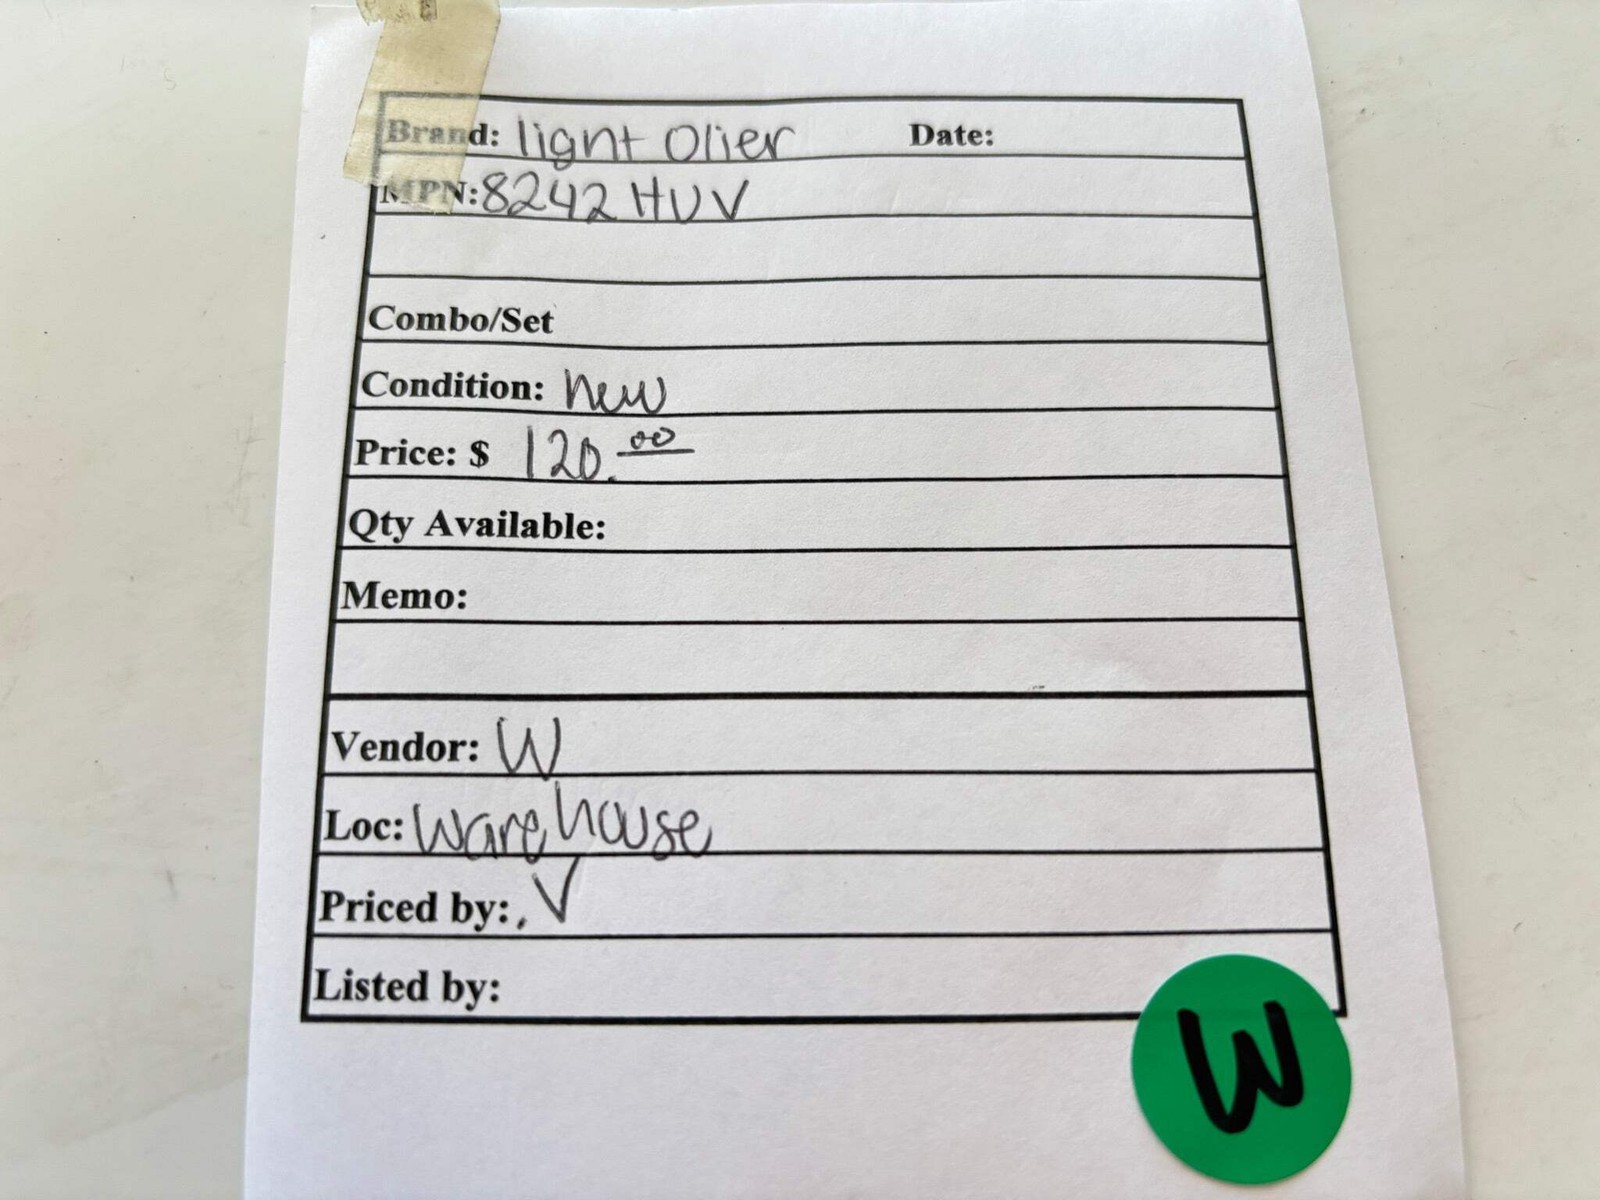 Brand: lignt Olier Date:
MPN: 8242 HUV
Combo/Set
Condition: new
Price: $ 120.00
Qty Available:
Memo:
Vendor: W
Loc: Warehouse
Priced by: V
Listed by:
W